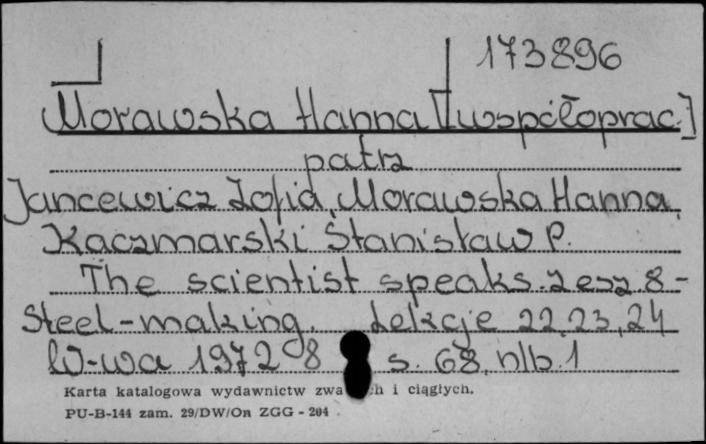 173896
Morawska Hanna [współoprac.]
patrz
Jancewicz Zofia, Morawska Hanna,
Kaczmarski Stanisław P.
The scientist speaks. Zesz. 8 -
Steel-making. Lekcje 22, 23, 24
W-wa 1972 8° s. 68, nlb. 1
Karta katalogowa wydawnictw zwa h i ciągłych.
PU-B-144 zam. 29/DW/On ZGG - 204